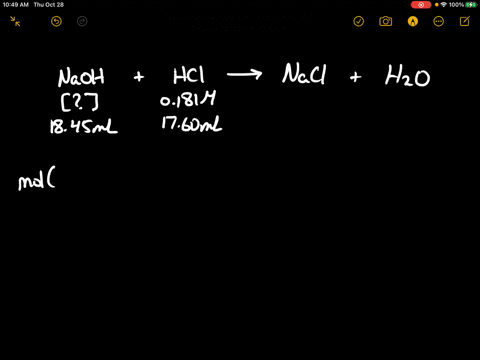 10:49 AM Thu Oct 28
100%
NaOH + HCl → NaCl + H2O
[?] 0.181M
18.45mL 17.60mL
mol(